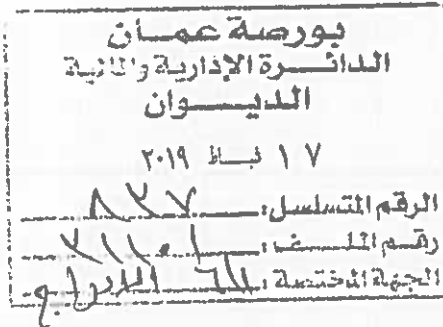 بورصة عمان
الدائرة الإدارية والمالية
الديوان
١٧ شباط ٢٠١٩
الرقم المتسلسل: ٨٣٧
رقم الملف:
الجهة المختصة: